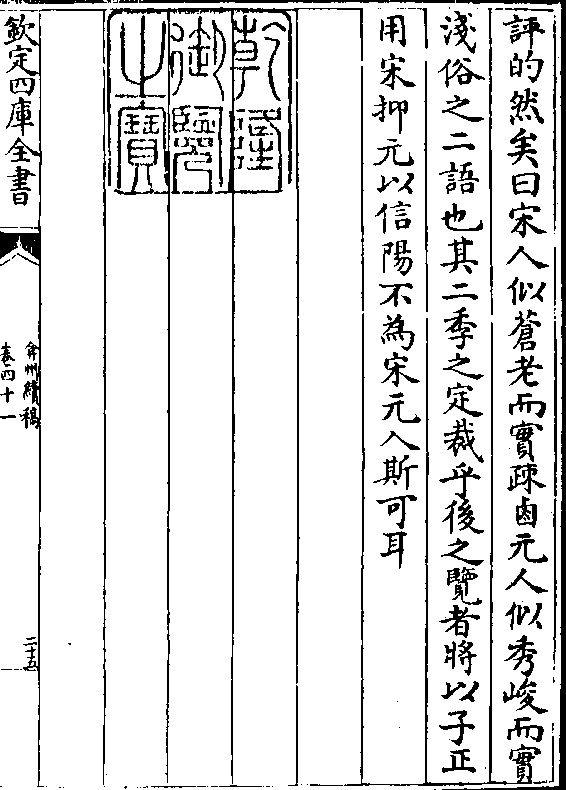 評的然矣曰宋人似蒼老而實疎鹵元人似秀峻而實
淺俗之二語也其二季之定裁乎後之覽者將以子正
用宋抑元以信陽不為宋元入斯可耳
乾隆
御覽
之寶
欽定四庫全書
弇州續稿
卷四十一
二十五